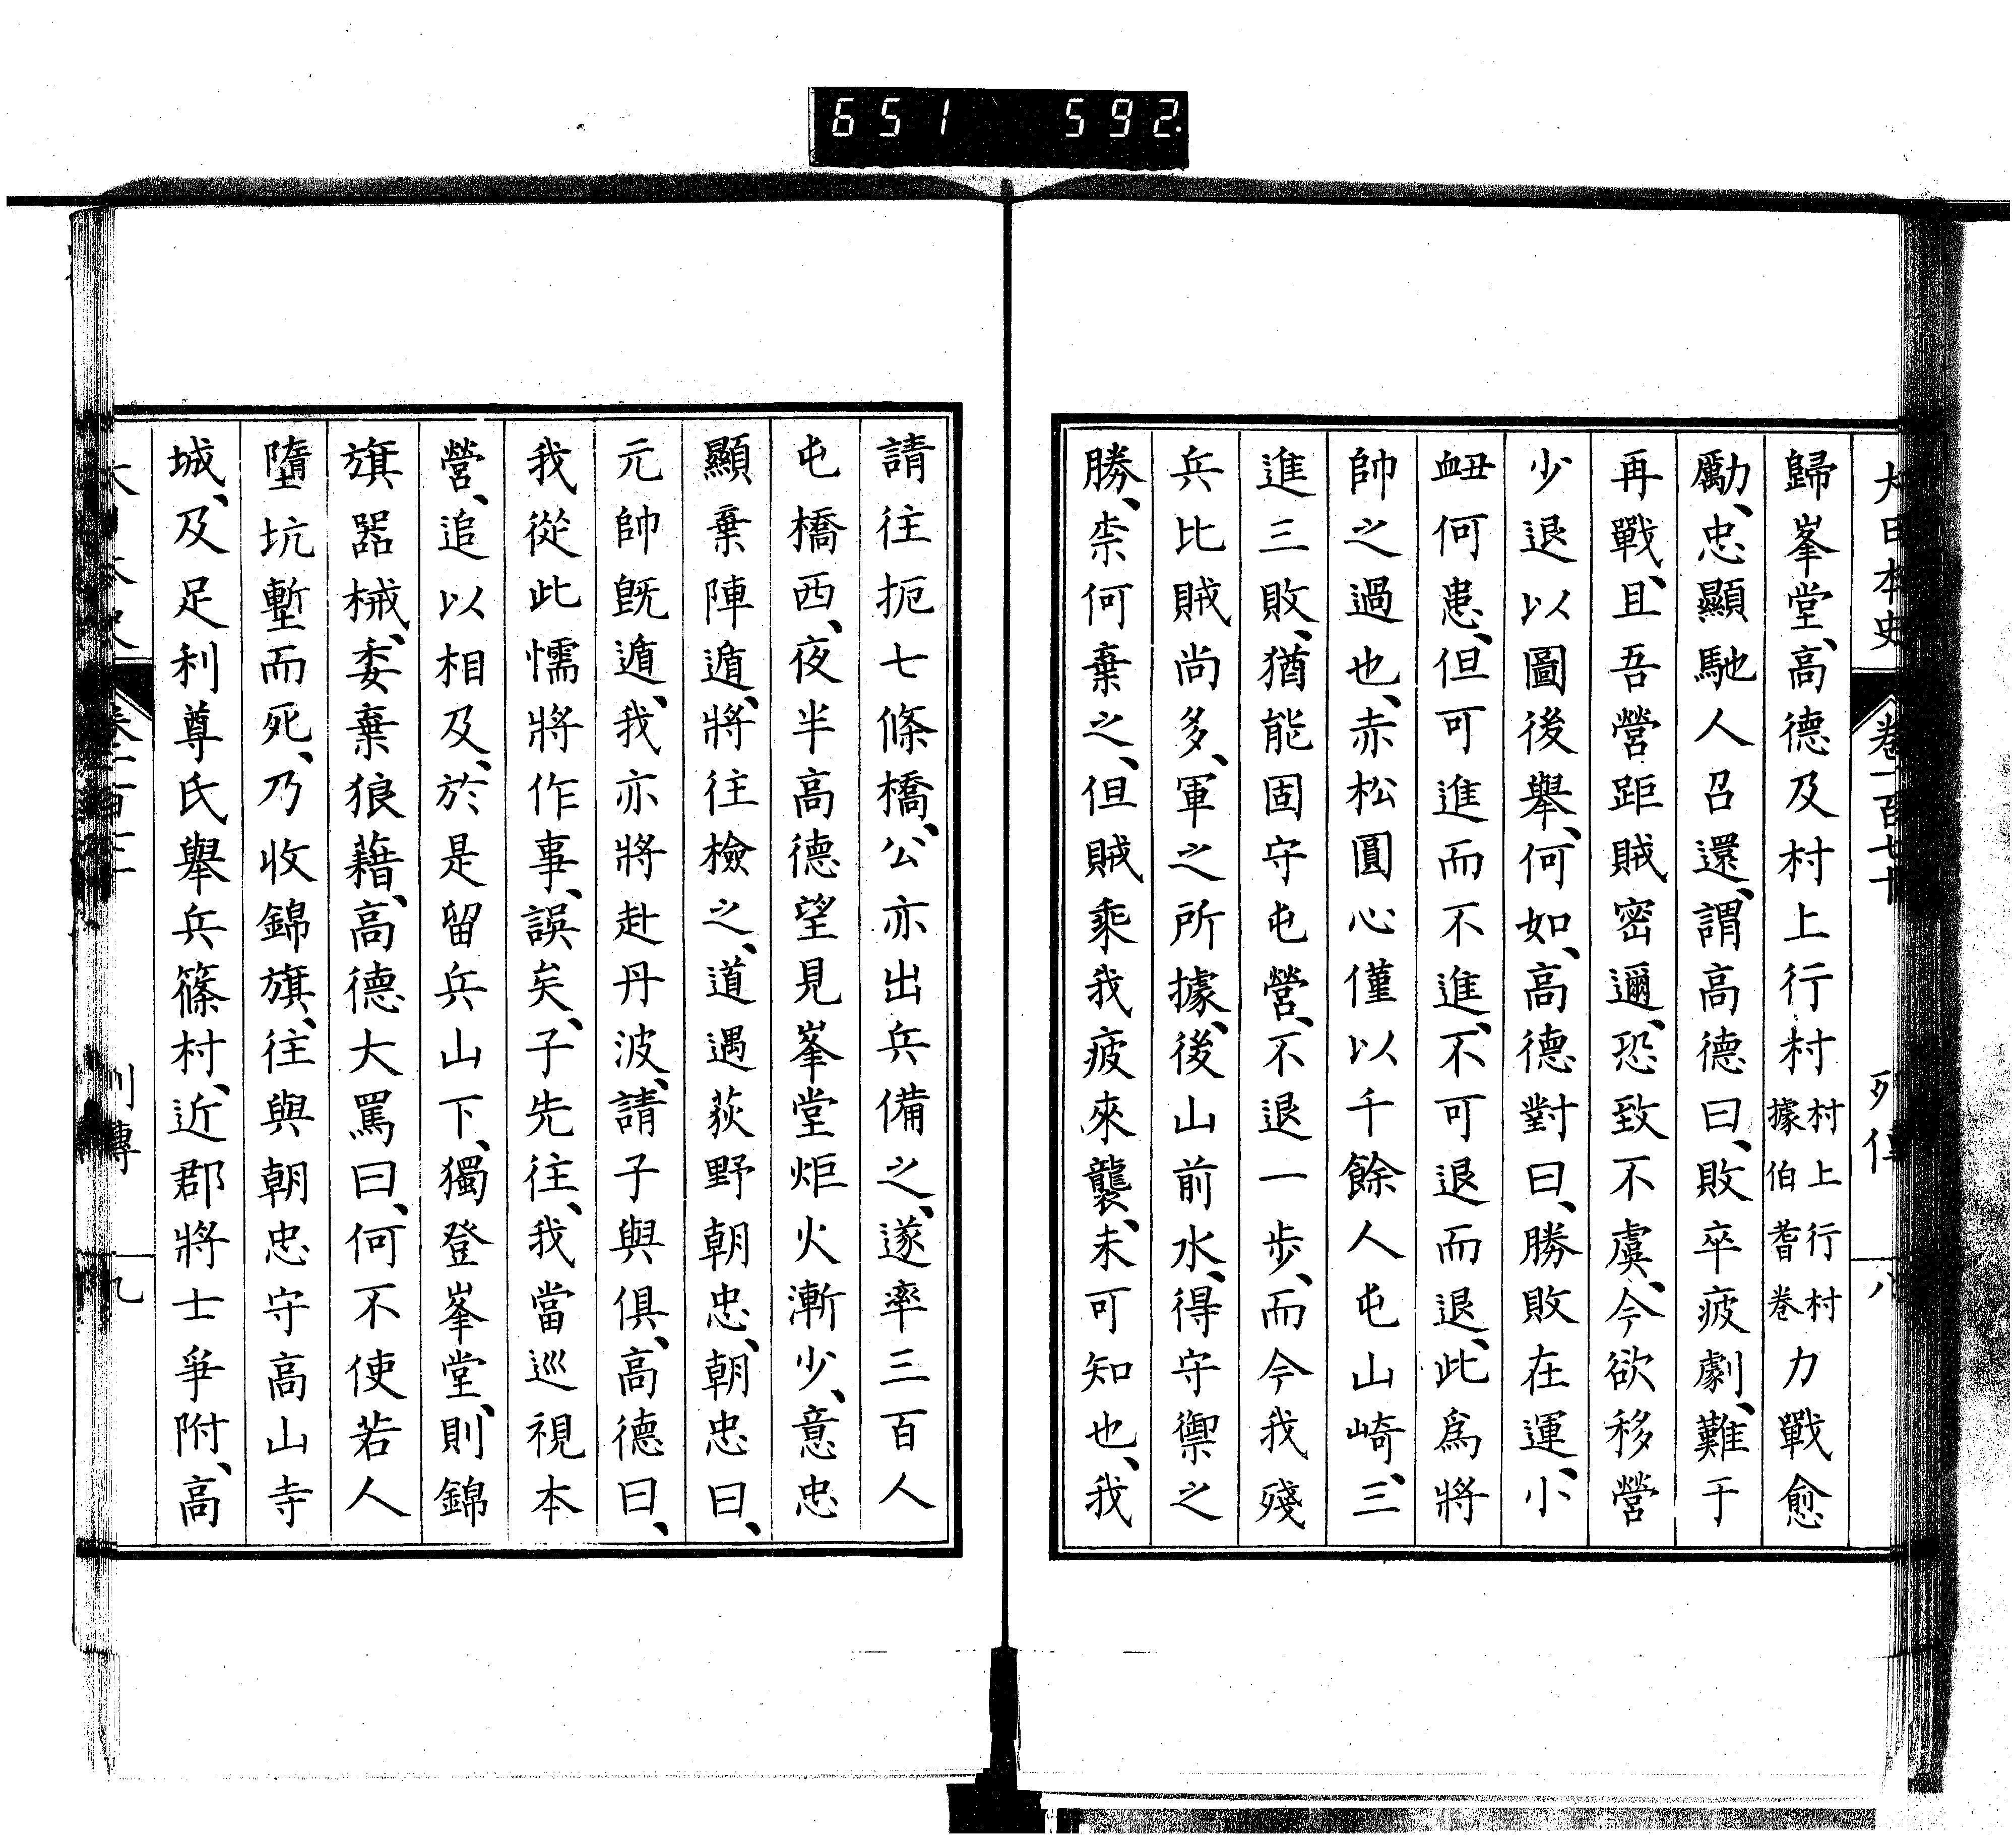 651 592.
大日本史 卷一百七十 列傳 八
歸峯堂、高德及村上行村村上行村據伯耆卷力戰愈
勵、忠顯馳人召還、謂高德曰、敗卒疲劇、難于
再戰、且吾營距賊密邇、恐致不虞、今欲移營
少退以圖後舉、何如、高德對曰、勝敗在運、小
衄何患、但可進而不進、不可退而退、此爲將
帥之過也、赤松圓心僅以千餘人屯山崎、三
進三敗、猶能固守屯營、不退一步、而今我殘
兵比賊尚多、軍之所據、後山前水、得守禦之
勝、柰何棄之、但賊乘我疲來襲、未可知也、我
請往扼七條橋、公亦出兵備之、遂率三百人
屯橋西、夜半高德望見峯堂炬火漸少、意忠
顯棄陣遁、將往檢之、道遇荻野朝忠、朝忠曰、
元帥既遁、我亦將赴丹波、請子與俱、高德曰、
我從此懦將作事、誤矣、子先往、我當巡視本
營、追以相及、於是留兵山下、獨登峯堂、則錦
旗器械、委棄狼藉、高德大罵曰、何不使若人
墮坑塹而死、乃收錦旗、往與朝忠守高山寺
城、及足利尊氏舉兵篠村、近郡將士爭附、高
列傳 九